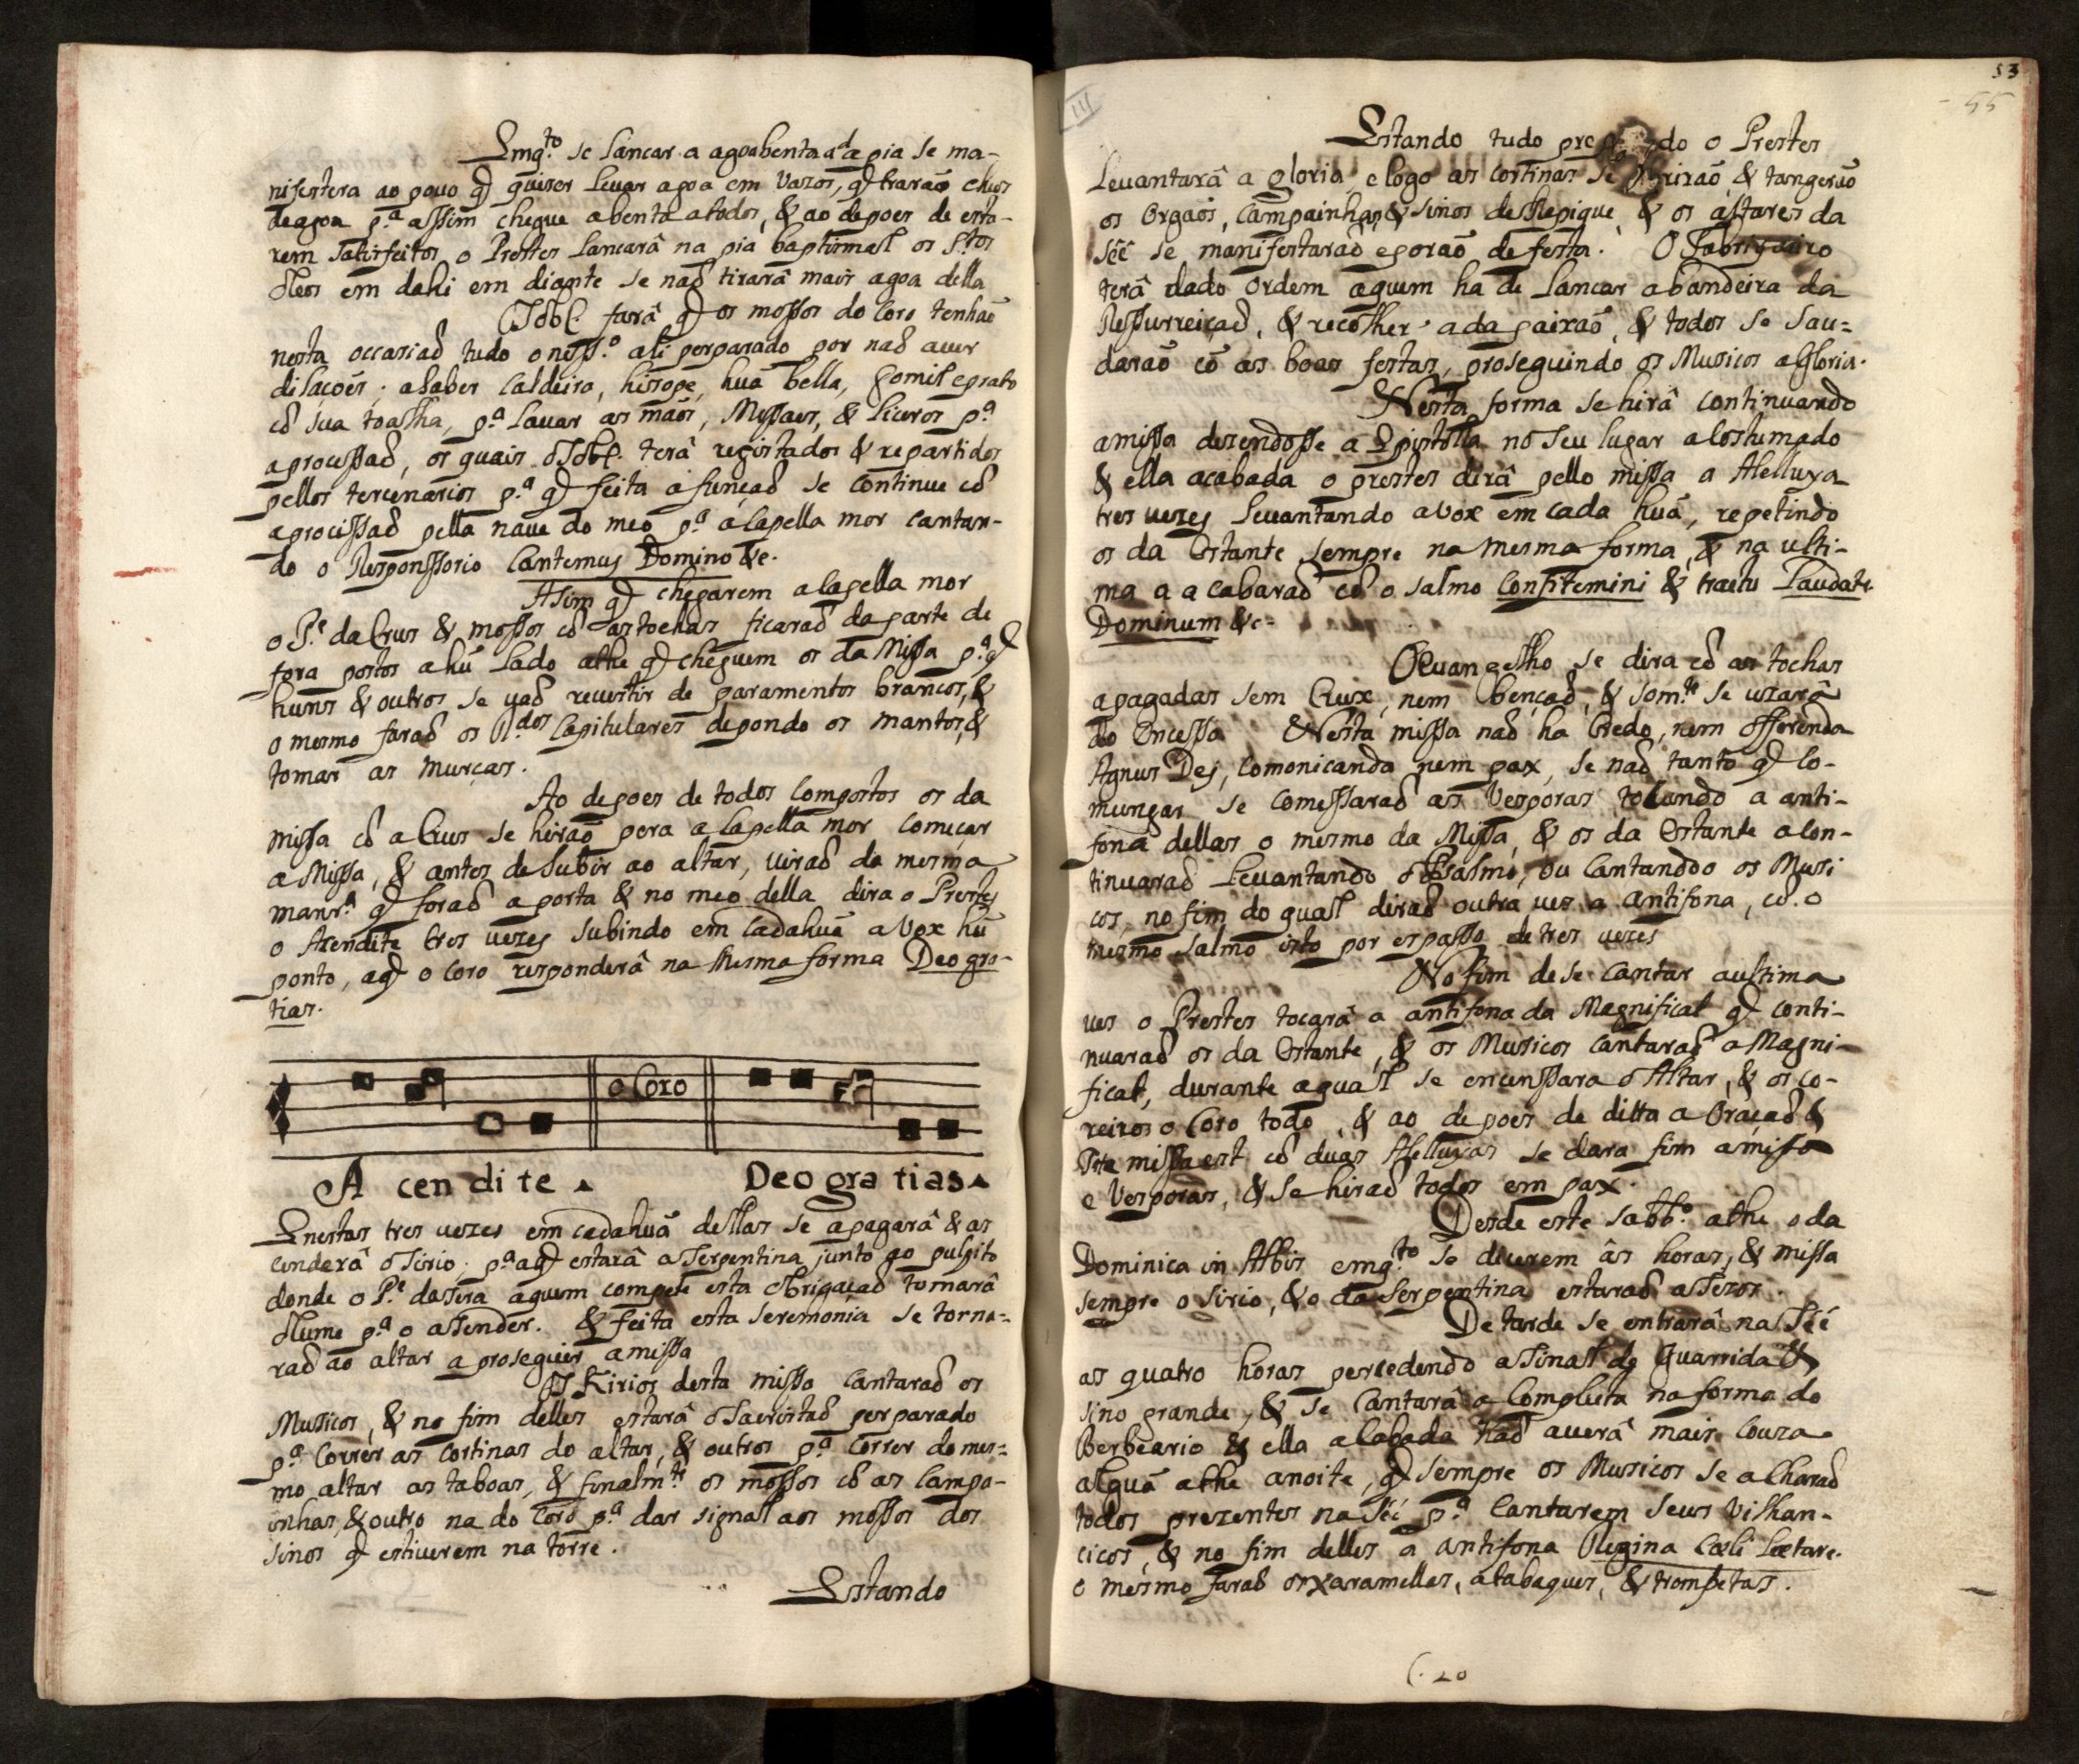 Emq.to se lancar a agoabenta a da pia se ma-
nifestera ao povo q̃ quiser levar agoa em vazos, q̃ trarão cheos
de agoa p.a assim chegue abenta a todos, & ao depoes de esta-
rem satisfeitos o Prestes lancarâ na pia baptismal os S.tos
Oleos em dahi em diante se naõ tirarâ mais agoa della
O Tobl. farâ q̃ os mossos do Coro tenhaõ
nesta occasiaõ tudo o ness.o ali perparado por naõ aver
dilaçoẽs; a saber Caldeira, hissope, huã bella, gomil e prato
cõ sua toalha, p.a lavar as maõs, Missaes, & liceros p.a
a processaõ, os quais o Tobl. terâ registados & repartidos
pellos tercenarios p.a q̃ feita a funçaõ se continue cõ
a procissaõ pella nave do meo p.a a Capella mor cantan-
do o Responssorio Cantemus Domino &c.
Asim q̃ chegarem a Capella mor
o P.e da Crus & mossos cõ as tochas ficaraõ da parte de
fora postos a hũ lado athe q̃ cheguem os da Missa p.a q̃
huns & outros se vaõ revestir de paramentos brancos, &
o mesmo faraõ os R.dos Capitulares depondo os mantos, &
tomar as murças.
Ao depoes de todos Compostos os da
missa cõ a Crus se hiraõ pera a Capella mor começar
a Missa, & antes de subir ao altar, viraõ da mesma
manr.a q̃ foraõ a porta & no meo della dira o Prestes
o Asendite tres vezes subindo em Cadahuã a vox hũ
ponto, aq̃ o Coro responderâ na mesma forma Deo gra-
tias.
o Coro
A cen di te Deo gra tias
Enestas tres vezes em cadahuã dellas se apagarâ & as
cenderâ o Sirio; p.a aq̃ estarâ a Serpentina junto ao pulpito
donde o P.e da Sera aquem compete esta obrigaçaõ tomarâ
o lume p.a o assender. & feita esta seremonia se torna-
raõ ao altar a proseguir a missa
Os Kirios desta missa Cantaraõ os
Mussicos, & no fim delles estarâ o Sacristaõ perparado
p.a Correr as Cortinas do altar, & outros p.a Correr do mes-
mo altar as taboas, & finalm.te os mossos cõ as Campa-
inhas & outro na do Coro p.a dar signal aos mossos dos
sinos q̃ estiverem na torre.
Estando
53
55
III
Estando tudo do o Prestes
Levantarâ a gloria, e logo as Cortinas se & tangeraõ
os Orgaõs, Campainhas, & sinos de Repique & os altares da
Séé se manifestaraõ e poraõ de festa. O Fabriqueiro
terâ dado ordem aquem ha de lancar a bandeira da
Ressurreiçaõ, & recolher a da paixaõ, & todos se sau-
daraõ cõ as boas festas, proseguindo os Musicos a Gloria.
Nesta forma se hirâ continuando
a missa dezendosse a Epistolla no seu lugar acostumado
& ella acabada o prestes dirâ pello missa a Alelluya
tres vezes levantando a vox em cada huã, repetindo
os da Estante sempre na mesma forma, & na ulti-
ma a acabaraõ cõ o salmo Confitemini & tractu Laudate
Dominum &c-
O Evangelho se dira cõ as tochas
apagadas sem Crux, nem bençaõ, & som.te se uzarâ
do Encesso Nesta missa naõ ha Credo, nem offerenda
Agnus Dej, Comonicanda nem pax, se naõ tanto q̃ Co-
mungar se Comessaraõ as Vesporas tocando a anti-
fona dellas o mesmo da Missa, & os da Estante a Con-
tinuaraõ Levantando o Psalmo, ou Cantanddo os Musi
cos, no fim do qual diraõ outra ves a antifona, cõ o
mesmo salmo isto por espasso de tres vezes
No fim de se Cantar a ultima
ves o Prestes tocarâ a antifona da Magnificat q̃ conti-
nuaraõ os da Estante, & os Mussicos Cantaraõ a Magni-
ficat, durante a qual se encenssara o Altar, & os co-
reiros o Coro todo, & ao depoes de ditta a Oraçaõ &
Ite missa est cõ duas Alelluyas se dara fim a missa
e Vesporas, & se hiraõ todos em pax.
Desde este sabb.o athe o da
Dominica in Albis emq.to se diverem âs horas, & missa
sempre o Sirio, & o da Serpentina estaraõ assezos.
De tarde se entrarâ na Séé
as quatro horas percedendo a sinal de Guarrida &
sino grande, & se Cantarâ a Completa na forma do
Berbeario & ella acabada naõ averâ mais Couza
alguã athe anoite, q̃ sempre os Mussicos se acharaõ
todos prezentes na Séé p.a Cantarem seus Vilhan-
cicos, & no fim delles a antifona Regina Cœli Lætare.
o mesmo faraõ os xaramellas, atabaques, & trombetas.